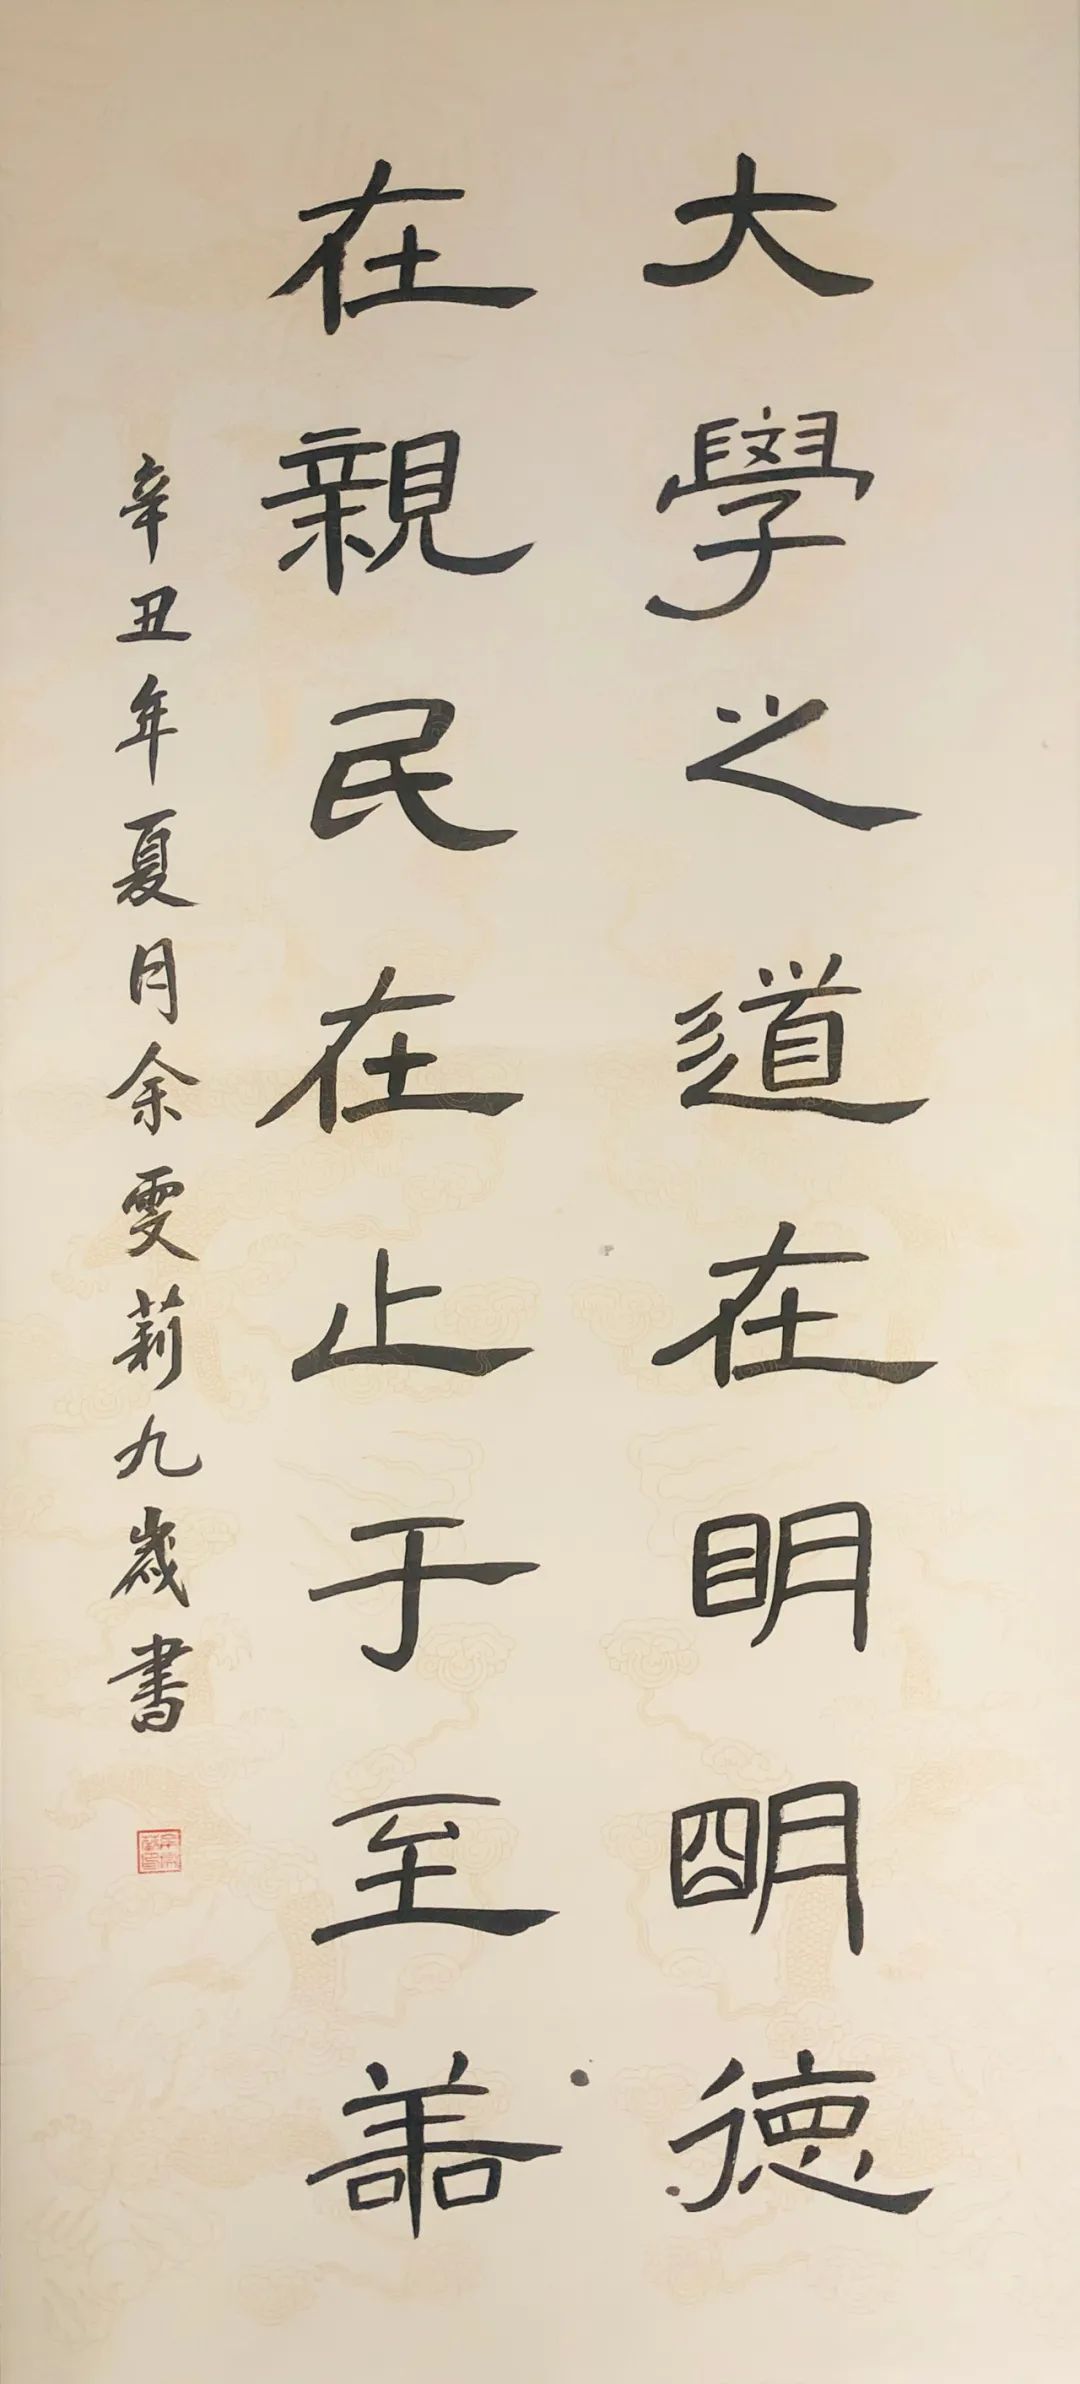 大學之道在明明德
在親民在止于至善
辛丑年夏月余雯莉九歲書